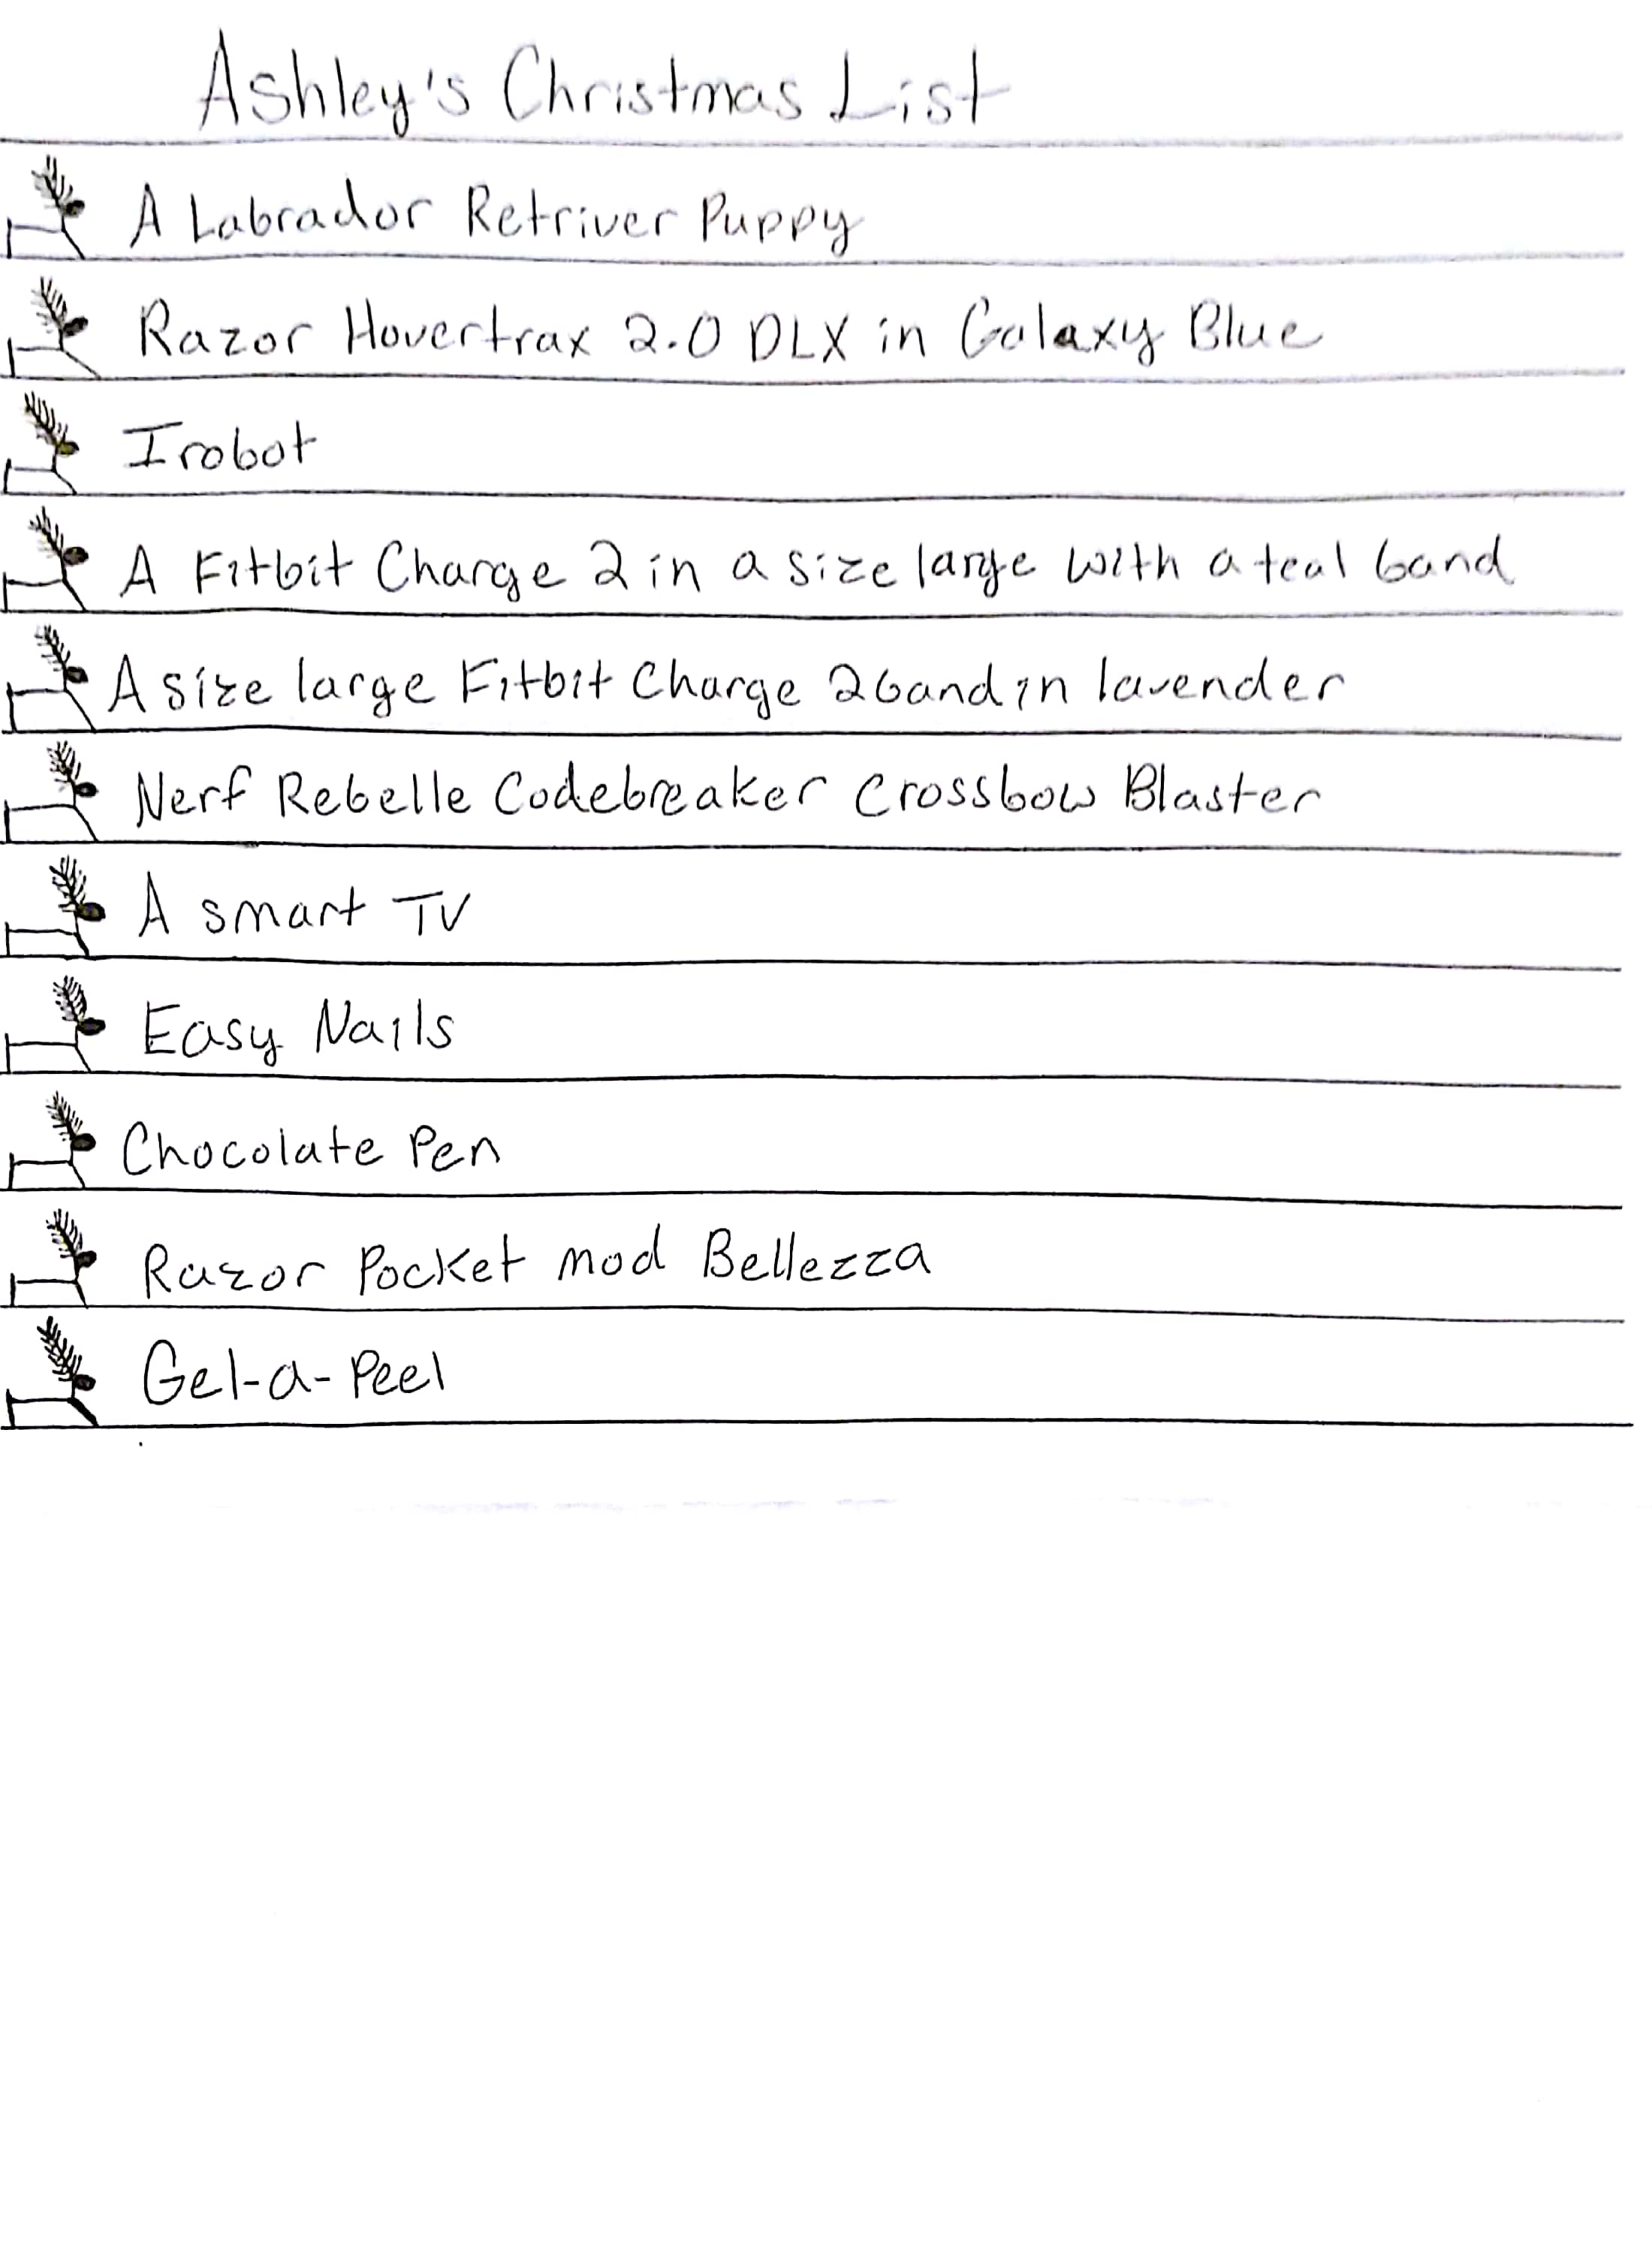 Ashley's Christmas List
A Labrador Retriver Puppy
Razor Hovertrax 2.0 DLX in Galaxy Blue
Irobot
A Fitbit Charge 2 in a size large with a teal band
A size large Fitbit Charge 2 band in lavender
Nerf Rebelle Codebreaker Crossbow Blaster
A smart TV
Easy Nails
Chocolate Pen
Razor Pocket mod Bellezza
Gel-a-Peel